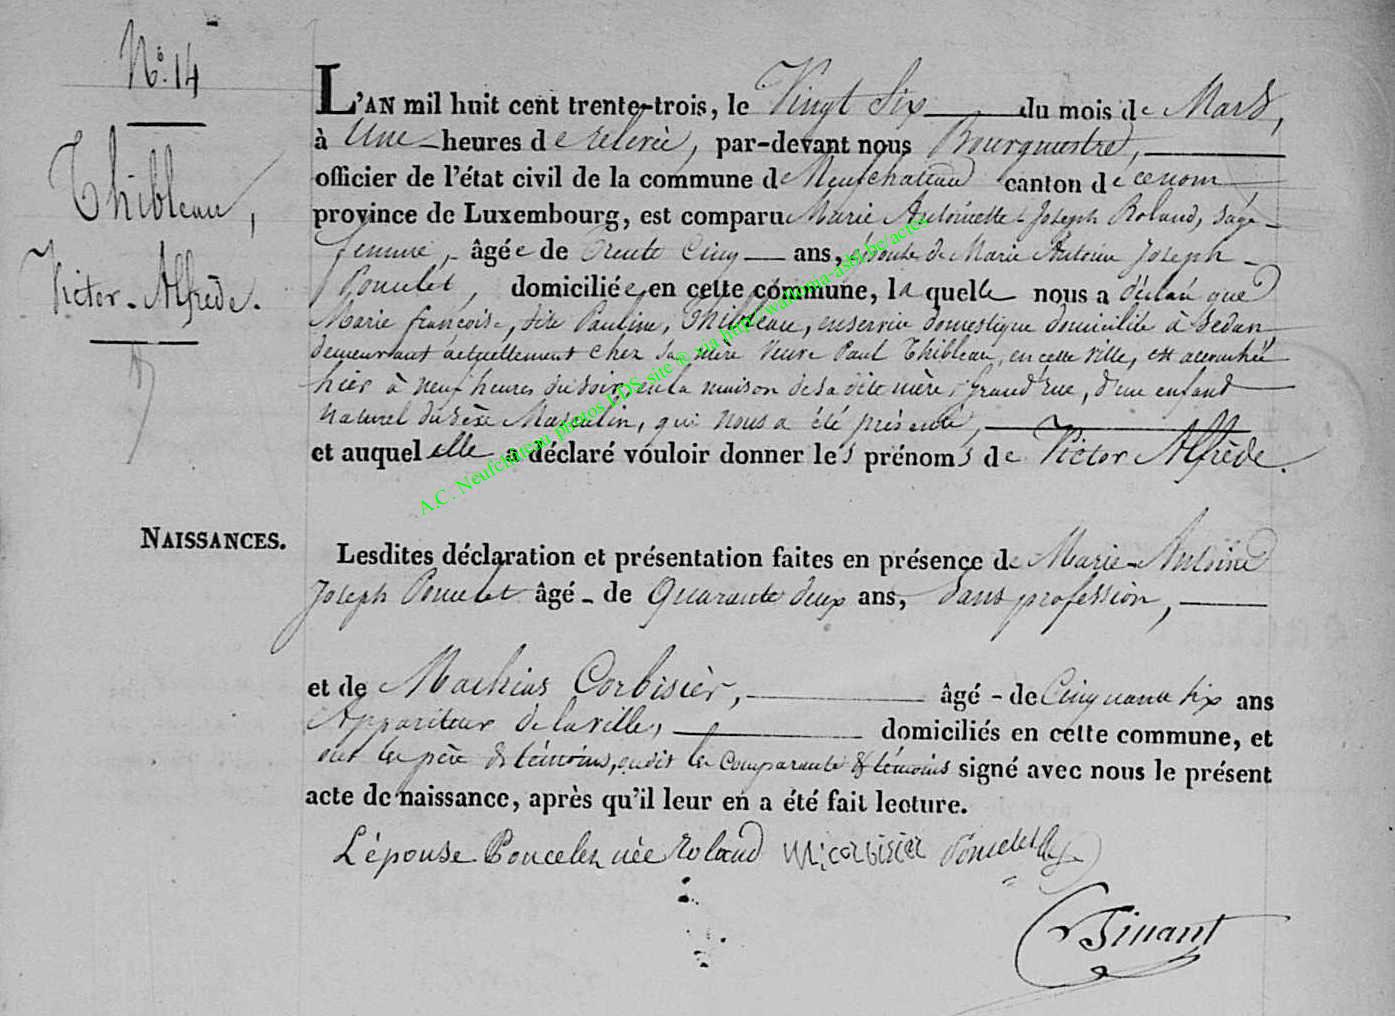 No. 14
Thibleau,
Victor-Alfrède.
L'AN mil huit cent trente-trois, le Vingt Six du mois de Mars,
à Une heures de relevée, par-devant nous Bourgmestre,
officier de l'état civil de la commune de Neufchateau canton de ce nom
province de Luxembourg, est comparu Marie Antoinette Joseph Roland, Sage-
femme, âgée de Trente Cinq ans, épouse de Marie Antoine Joseph
Poncelet, domiciliée en cette commune, la quelle nous a déclaré que
Marie françoise, dite Pauline, Thibleau, en service domestique domiciliée à Sedan
demeurant actuellement chez sa mère Veuve Paul Thibleau, en cette ville, est accouchée
hier à neuf heures du soir, en la maison de sa dite mère, Grand'rue, d'un enfant
naturel du sexe Masculin, qui nous a été présenté,
et auquel elle a déclaré vouloir donner les prénoms de Victor Alfrède.
NAISSANCES.
Lesdites déclaration et présentation faites en présence de Marie-Antoine
Joseph Poncelet âgé de Quarante deux ans, Sans profession,
et de Mathias Corbisier, âgé de Cinquante six ans
Appariteur de la ville, domiciliés en cette commune, et
ont les père & témoins, en dit la Comparante & témoins signé avec nous le présent
acte de naissance, après qu'il leur en a été fait lecture.
L'épouse Poncelet née Roland M: corbisier Poncelet
Tinant
A.C. Neufchâteau photos LDS site ® via http://wallonia-asbl.be/actes